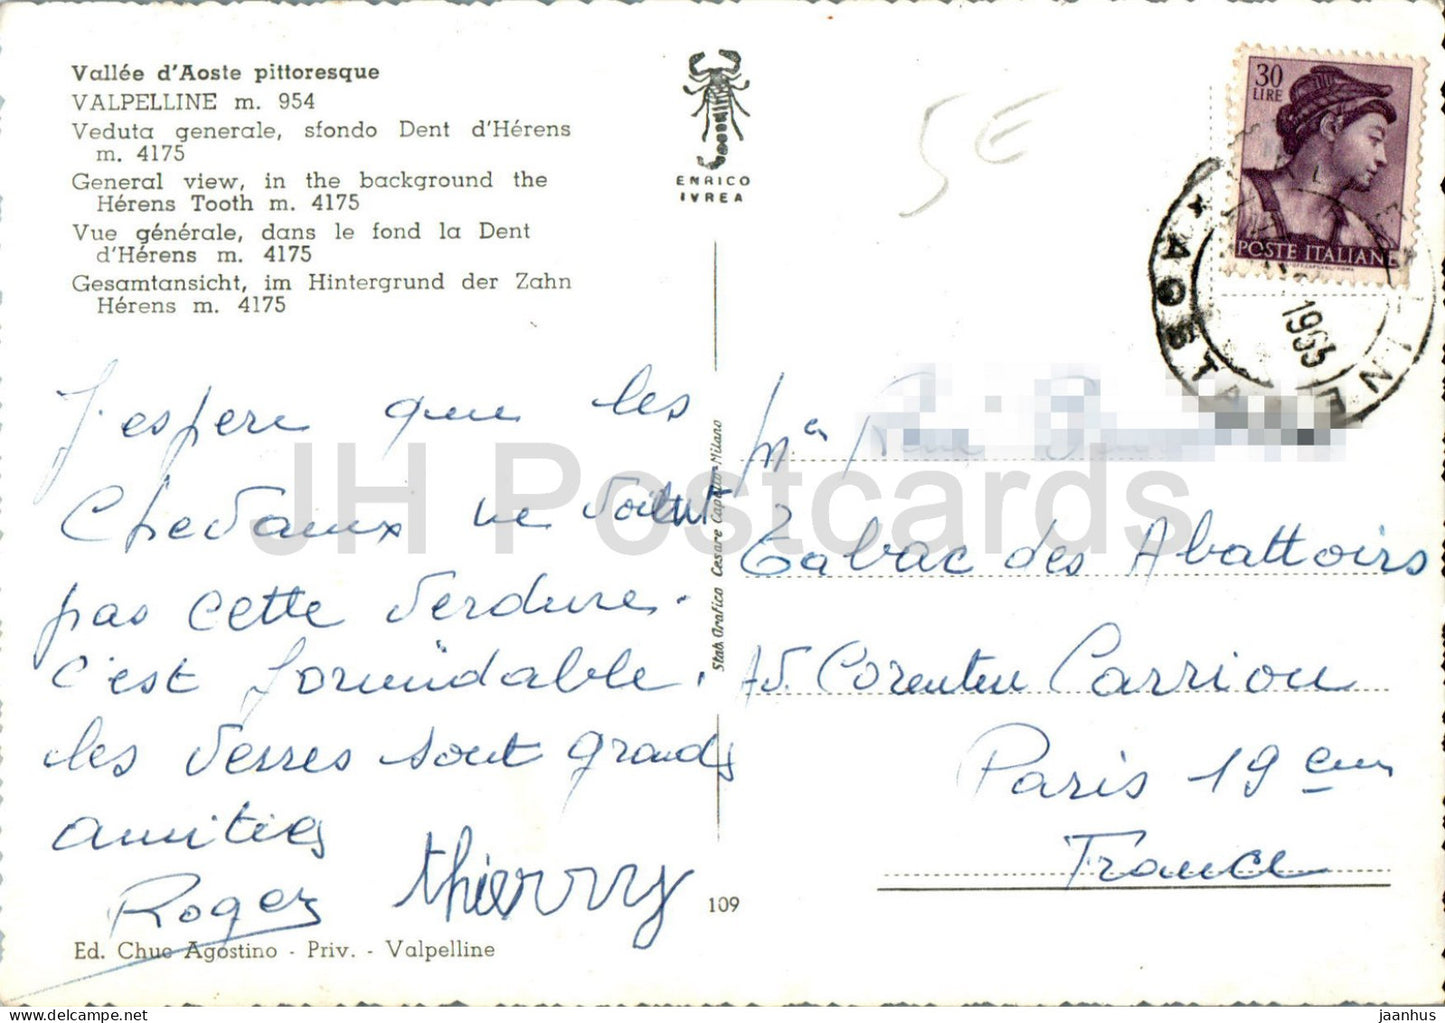 Vallée d'Aoste pittoresque
VALPELLINE m. 954
Veduta generale, sfondo Dent d'Hérens
m. 4175
General view, in the background the
Hérens Tooth m. 4175
Vue générale, dans le fond la Dent
d'Hérens m. 4175
Gesamtansicht, im Hintergrund der Zahn
Hérens m. 4175
ENRICO
IVREA
5€
30
LIRE
POSTE ITALIANE
* AOSTA
1965
J'espère que les
Chevaux ne voient
pas cette verdure.
C'est formidable.
les verres sont grands
amitiés
Roger thierrry
Stab. Grafico Cesare Capello-Milano
Mr
Tabac des Abattoirs
Av. Corentin Carriou
Paris 19 em
France
109
Ed. Chuc Agostino - Priv. - Valpelline
JH Postcards
jaanhus